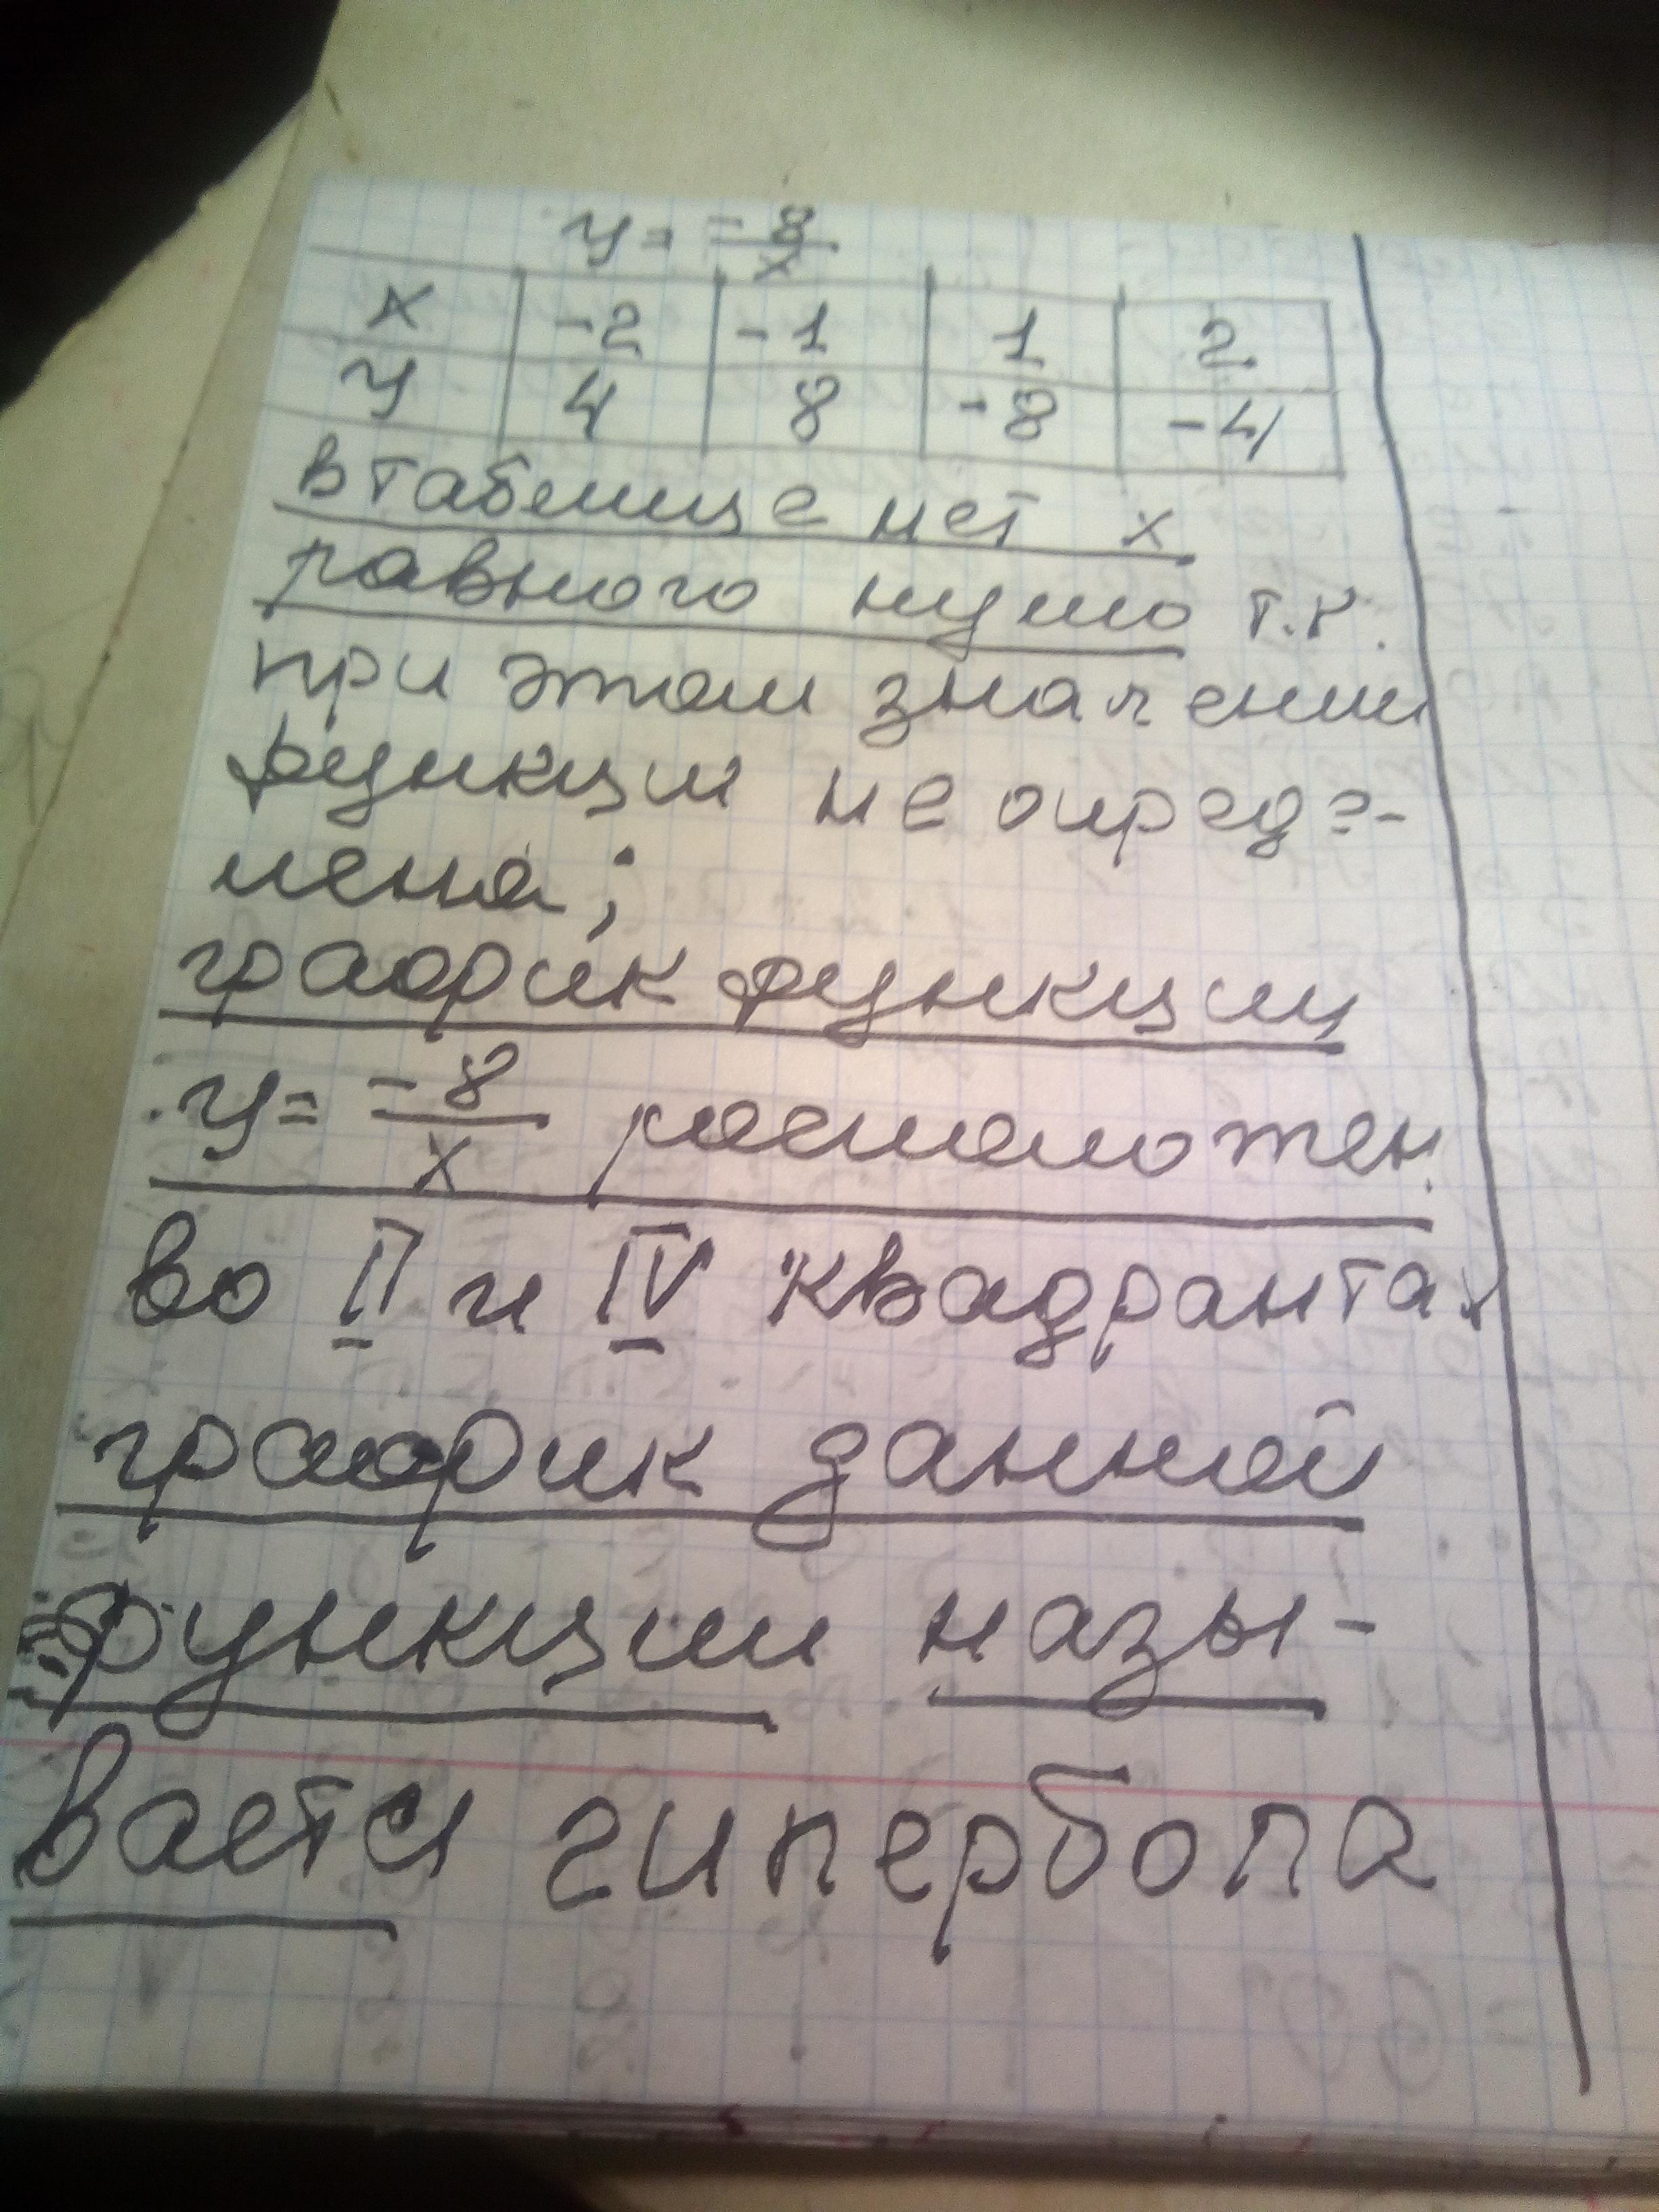 y = -8/x
x -2 -1 1 2
y 4 8 -8 -4
в таблице нет x
равного нулю т.к.
при этом значении
функции не опреде-
лена;
график функции
y = -8/x расположен
во II и IV квадрантах
график данной
функции назы-
вается гипербола